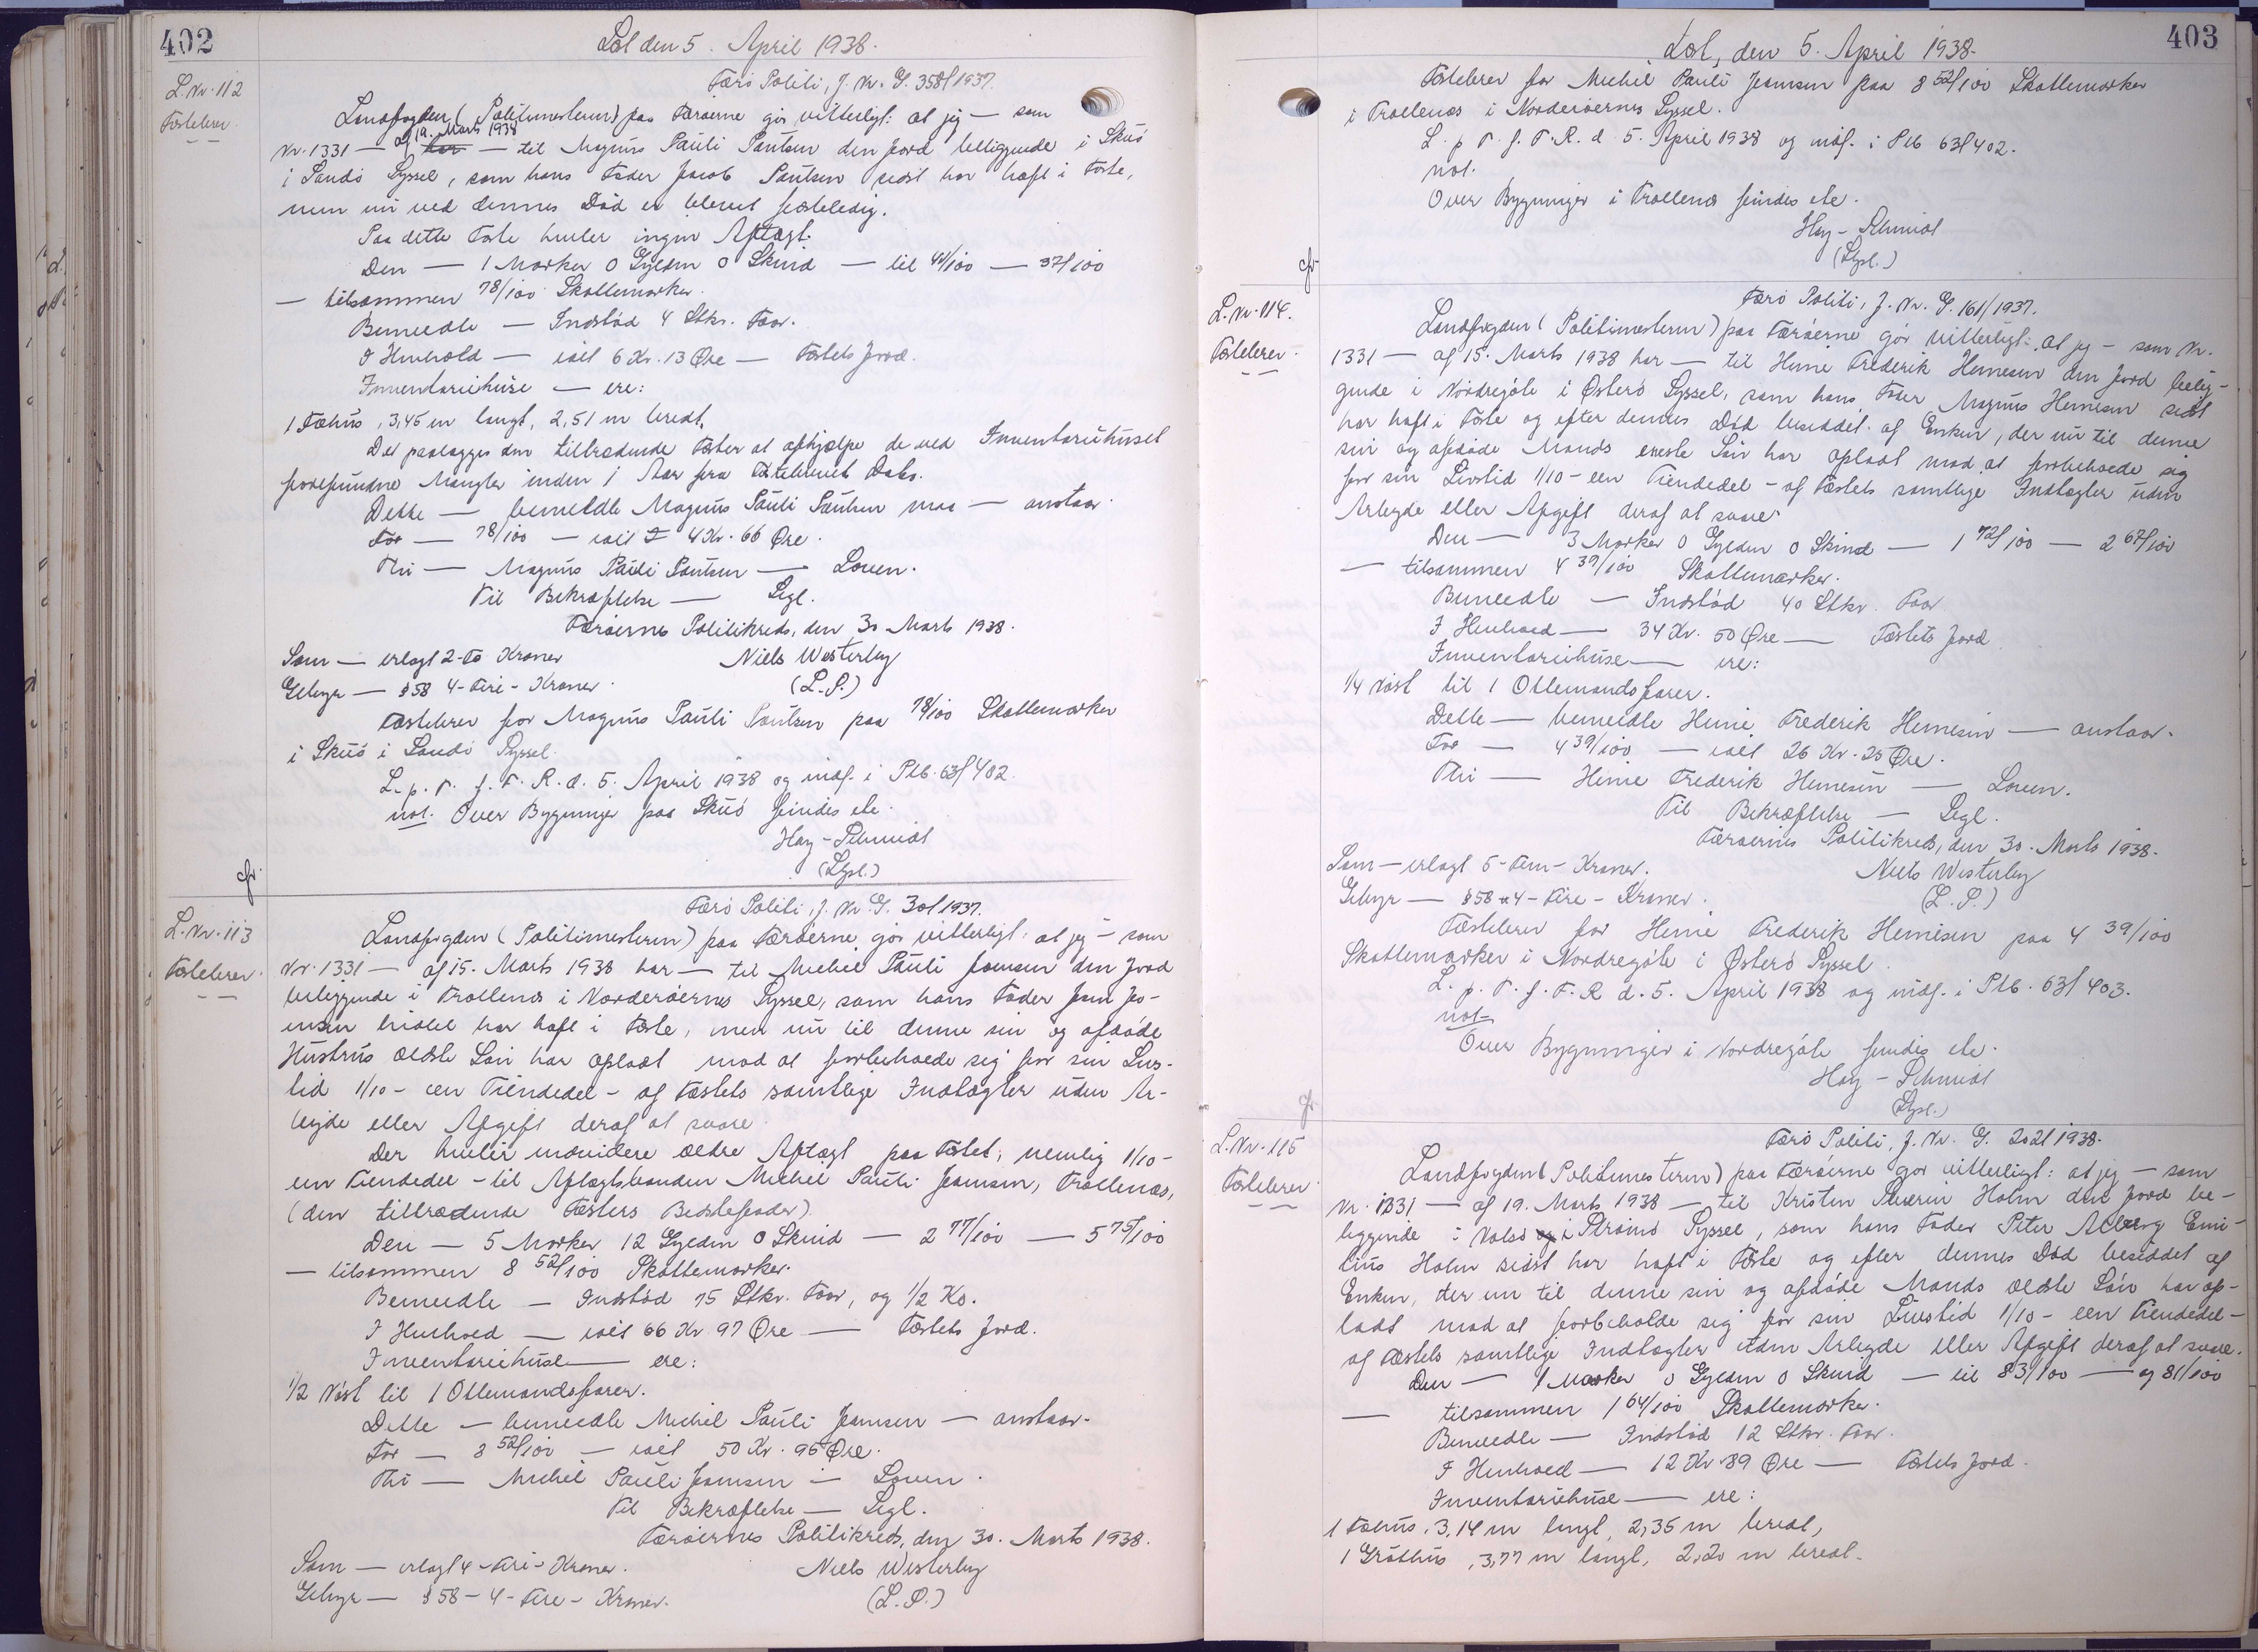 402
Læst den 5. April 1938.
L. Nr. 112
Færø Politi, J. Nr. G. 358/1937.
Fæstebrev.
Landfogden (Politimesteren) paa Færøerne gør vitterligt: at jeg — som
Nr. 1331 — af 19. Marts 1938 — til Magnus Pauli Poulsen den Jord beliggende i Skuø
i Sandø Syssel, som hans Fader Jacob Poulsen sidst har haft i Fæste,
men nu ved dennes Død er blevet fæsteledig.
Paa dette Fæste hviler ingen Aftægt.
Den — 1 Marker 0 Gylden 0 Skind — til 41/100 — 37/100
— tilsammen 78/100 Skattemarker.
Bemeldte — Indstød 4 Stkr. Faar.
I Henhold — ialt 6 Kr. 13 Øre — Fæstets Jord.
Inventariehuse — ere:
1 Fæhus, 3,45 m langt, 2,51 m bredt.
Det paalægges den tiltrædende Fæster at afhjælpe de ved Inventariehuset
forefundne Mangler inden 1 Aar fra Fæstebrevets Dato.
Dette — bemeldte Magnus Pauli Poulsen maa — anstaar.
For — 78/100 — ialt 4 Kr. 66 Øre.
Thi — Magnus Pauli Poulsen — Loven.
Til Bekræftelse — Segl.
Færøernes Politikreds, den 30 Marts 1938.
Som — erlagt 2-To Kroner
Niels Westerby
Gebyr — § 58 4-Fire-Kroner.
(L.S.)
Fæstebrev for Magnus Pauli Poulsen paa 78/100 Skattemarker
i Skuø i Sandø Syssel.
L. p. T. f. F. R. d. 5. April 1938 og indf. i Ptb. 63/402.
not. Over Bygninger paa Skuø findes ete.
Hay-Schmidt
(Stpl.)
cfr.
L. Nr. 113
Færø Politi, J. Nr. G. 30/1937.
Fæstebrev.
Landfogden (Politimesteren) paa Færøerne gør vitterligt: at jeg — som
Nr. 1331 — af 15. Marts 1938 har — til Michel Pauli Joensen den Jord
beliggende i Trøllenes i Norderøernes Syssel, som hans Fader Joen Jo-
ensen hidtil har haft i Fæste, men nu til denne sin og afdøde
Hustrus ældste Søn har opladt mod at forbeholde sig for sin Livs-
tid 1/10 - een Tiendedel - af Fæstets samtlige Indtægter uden Ar-
bejde eller Afgift deraf at svare.
Der hviler endvidere ældre Aftægt paa Fæstet, nemlig 1/10 -
een Tiendedel - til Aftægtsbonden Michel Pauli Joensen, Trøllenes,
(den tiltrædende Fæsters Bedstefader).
Den — 5 Marker 12 Gylden 0 Skind — 2 77/100 — 5 75/100
— tilsammen 8 52/100 Skattemarker.
Bemeldte — Indstød 75 Stkr. Faar, og 1/2 Ko.
I Henhold — ialt 66 Kr. 97 Øre — Fæstets Jord.
Inventariehuse — ere:
1/2 Nøst til 1 Ottemandsfarer.
Dette — bemeldte Michel Pauli Joensen — anstaar.
For — 8 52/100 — ialt 50 Kr. 95 Øre.
Thi — Michel Pauli Joensen — Loven.
Til Bekræftelse — Segl.
Færøernes Politikreds, den 30. Marts 1938.
Som — erlagt 4-Fire-Kroner.
Niels Westerby
Gebyr — § 58 - 4-Fire-Kroner.
(L.S.)
403
Læst, den 5. April 1938.
Fæstebrev for Michel Pauli Joensen paa 8 52/100 Skattemarker
i Trøllenes i Norderøernes Syssel.
L. p. T. f. F. R. d. 5. April 1938 og indf. i Ptb 63/402.
not.
Over Bygninger i Trøllenes findes ete.
Hay-Schmidt
(Stpl.)
cfr.
L. Nr. 114.
Færø Politi, J. Nr. G. 161/1937.
Fæstebrev.
Landfogden (Politimesteren) paa Færøerne gør vitterligt: at jeg — som Nr.
1331 — af 15. Marts 1938 har — til Heine Frederik Heinesen den Jord belig-
gende i Nordregøte i Østerø Syssel, som hans Fader Magnus Heinesen sidst
har haft i Fæste og efter dennes Død besiddet af Enken, der nu til denne
sin og afdøde Mands eneste Søn har opladt mod at forbeholde sig
for sin Livstid 1/10 - een Tiendedel - af Fæstets samtlige Indtægter uden
Arbejde eller Afgift deraf at svare.
Den — 3 Marker 0 Gylden 0 Skind — 1 72/100 — 2 67/100
— tilsammen 4 39/100 Skattemarker.
Bemeldte — Indstød 40 Stkr. Faar
I Henhold — 34 Kr. 50 Øre — Fæstets Jord
Inventariehuse — ere:
1/4 Nøst til 1 Ottemandsfarer.
Dette — bemeldte Heine Frederik Heinesen — anstaar.
For — 4 39/100 — ialt 26 Kr. 25 Øre.
Thi — Heine Frederik Heinesen — Loven.
Til Bekræftelse — Segl.
Færøernes Politikreds, den 30. Marts 1938.
Som — erlagt 5-Fem-Kroner.
Niels Westerby
Gebyr — § 58 4-Fire-Kroner.
(L.S.)
Fæstebrev for Heine Frederik Heinesen paa 4 39/100
Skattemarker i Nordregøte i Østerø Syssel.
L. p. T. f. F. R. d. 5. April 1938 og indf. i Ptb. 63/403.
not.
Over Bygninger i Nordregøte findes ete.
Hay-Schmidt
(Stpl.)
cfr.
L. Nr. 115
Færø Politi, J. Nr. G. 202/1938.
Fæstebrev.
Landfogden (Politimesteren) paa Færøerne gør vitterligt: at jeg — som
Nr. 1331 — af 19. Marts 1938 — til Kristen Severin Holm den Jord be-
liggende i Nolsø i Strømø Syssel, som hans Fader Peter Alberg Emi-
lius Holm sidst har haft i Fæste og efter dennes Død besiddet af
Enken, der nu til denne sin og afdøde Mands ældste Søn har op-
ladt mod at forbeholde sig for sin Livstid 1/10 - een Tiendedel -
af Fæstets samtlige Indtægter uden Arbejde eller Afgift deraf at svare.
Den — 1 Marker 0 Gylden 0 Skind — til 83/100 — og 81/100
— tilsammen 1 64/100 Skattemarker.
Bemeldte — Indstød 12 Stkr. Faar.
I Henhold — 12 Kr. 89 Øre — Fæstets Jord.
Inventariehuse — ere:
1 Fæhus, 3,14 m langt, 2,35 m bredt,
1 Gróthus, 3,77 m langt, 2,20 m bredt.